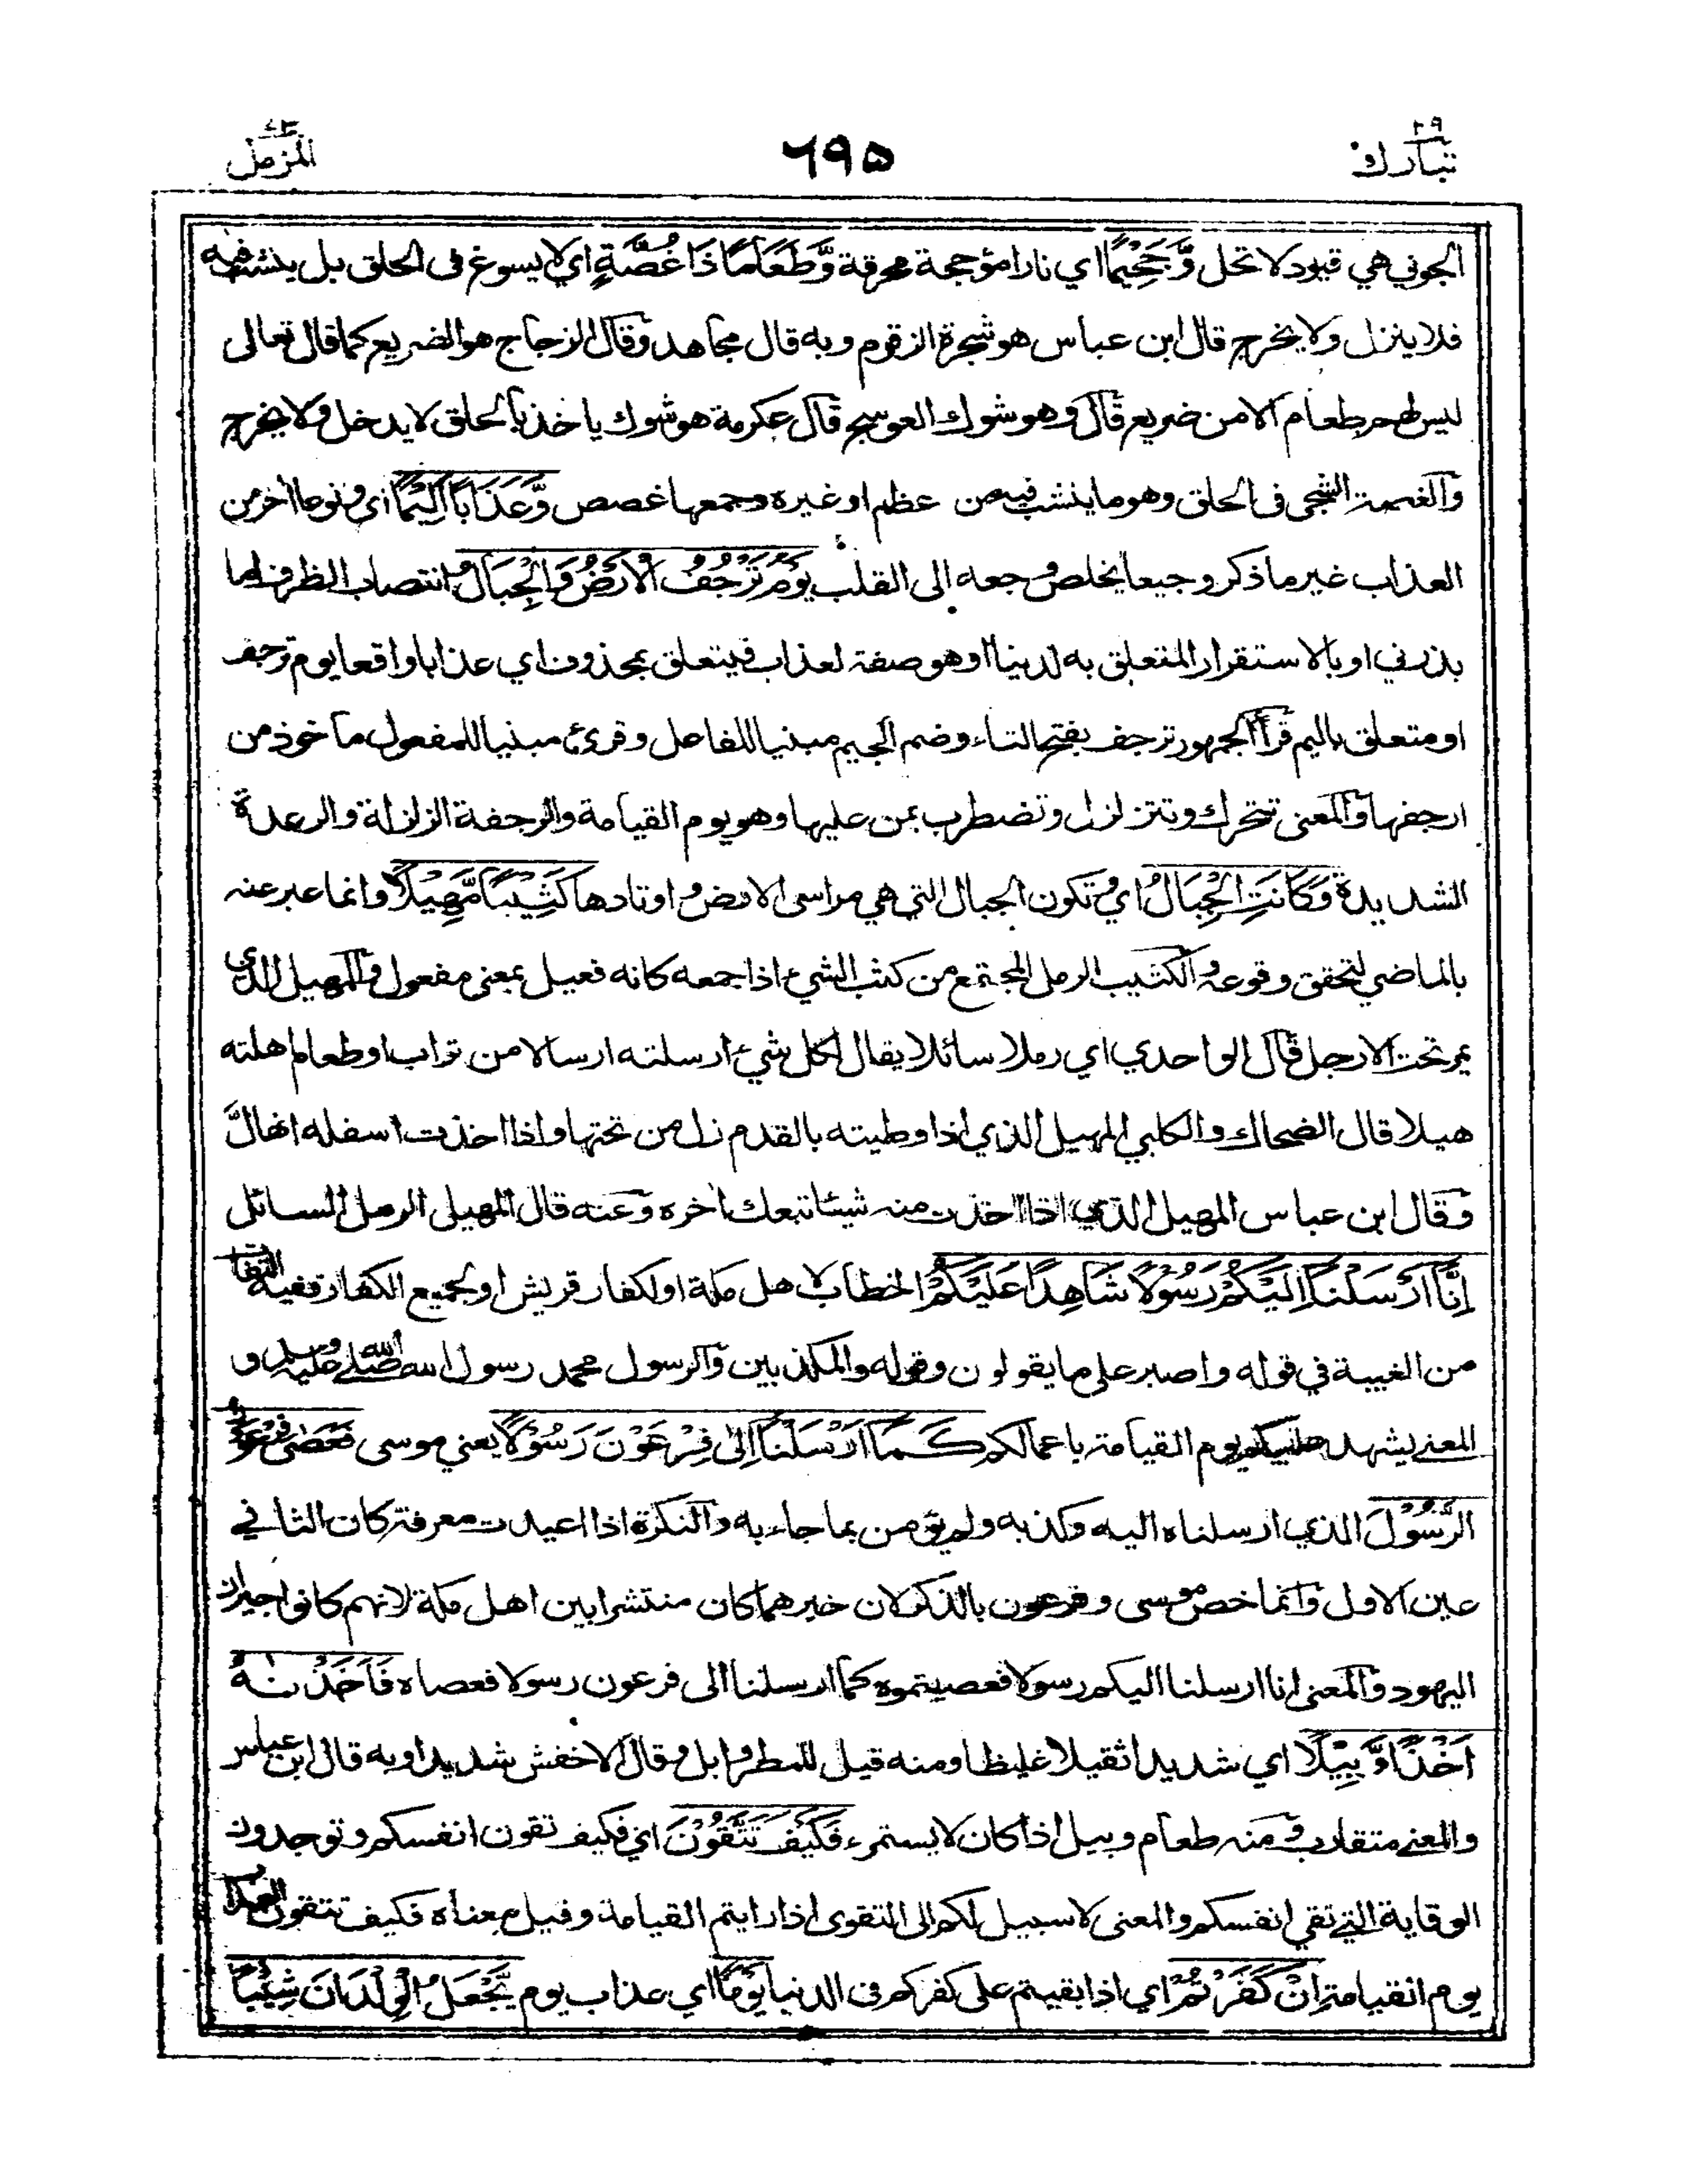 تبارك ٢٩
٦٩٥
المزمل ٧٣
الجوني هي قيود لا تحل وَّجَحِيْمًا اي نارا مؤججة محرقة وَّطَعَامًا ذَا غُصَّةٍ اي لا يسوغ فى الحلق بل ينشب فيه
فلا ينزل ولا يخرج قال ابن عباس هو شجرة الزقوم وبه قال مجاهد وقال الزجاج هو الضريع كما قال تعالى
ليس لهم طعام الا من ضريع قال وهو شوك العوسج قال عكرمة هو شوك ياخذ بالحلق لا يدخل ولا يخرج
والغصة الشجى فى الحلق وهو ما ينشب فيه من عظم او غيره وجمعها غصص وَّعَذَابًا اَلِيْمًا اي ونوعا اخر من
العذاب غير ما ذكر وجيعا يخلص وجعه الى القلب يَوْمَ تَرْجُفُ الْاَرْضُ وَالْجِبَالُ انتصاب الظرف اما
بذرني او بالاستقرار المتعلق به لدينا او هو صفة لعذاب فيتعلق بمحذوف اي عذابا واقعا يوم ترجف
او متعلق باليم قرأ الجمهور ترجف بفتح التاء وضم الجيم مبنيا للفاعل وقرئ مبنيا للمفعول ماخوذ من
ارجفها والمعنى تتحرك وتتزلزل وتضطرب بمن عليها وهو يوم القيامة والرجفة الزلزلة والرعدة
الشديدة وَكَانَتِ الْجِبَالُ اي وتكون الجبال التي هي مراسى الارض واوتادها كَثِيْبًا مَّهِيْلًا وانما عبر عنه
بالماضي لتحقق وقوعه والكثيب الرمل المجتمع من كثب الشيء اذا جمعه كانه فعيل بمعنى مفعول والمهيل الذي
يمر تحت الارجل قال الواحدي اي رملا سائلا يقال لكل شيء ارسلته ارسالا من تراب او طعام اهلته
هيلا قال الضحاك والكلبي المهيل الذي اذا وطيته بالقدم زل من تحتها واذا اخذت اسفله انهالّ
وقال ابن عباس المهيل الذي اذا اخذت منه شيئا تبعك اخره وعنه قال المهيل الرمل السائل
اِنَّا اَرْسَلْنَا اِلَيْكُمْ رَسُوْلًا شَاهِدًا عَلَيْكُمْ الخطاب لاهل مكة او لكفار قريش او لجميع الكفار ففيه التفات
من الغيبة في قوله واصبر على ما يقولون وقوله والمكذبين والرسول محمد رسول الله صلى الله عليه وسلم و
المعنى يشهد عليكم يوم القيامة باعمالكم كَمَا اَرْسَلْنَا اِلٰى فِرْعَوْنَ رَسُوْلًا يعني موسى فَعَصٰى فِرْعَوْنُ
الرَّسُوْلَ الذي ارسلناه اليه وكذبه ولم يؤمن بما جاء به والنكرة اذا اعيدت معرفة كان الثاني
عين الاول وانما خص موسى وفرعون بالذكر لان خبرهما كان منتشرا بين اهل مكة لانهم كانوا جيران
اليهود والمعنى انا ارسلنا اليكم رسولا فعصيتموه كما ارسلنا الى فرعون رسولا فعصاه فَاَخَذْنٰهُ
اَخْذًا وَّبِيْلًا اي شديدا ثقيلا غليظا ومنه قيل للمطر وابل وقال الاخفش شديدا وبه قال ابن عباس
والمعنى متقارب ومنه طعام وبيل اذا كان لا يستمرء فَكَيْفَ تَتَّقُوْنَ اي فكيف تقون انفسكم وتوجدون
الوقاية التي تقي انفسكم والمعنى لا سبيل لكم الى التقوى اذا رايتم القيامة وقيل معناه فكيف تتقون العذاب
يوم القيامة اِنْ كَفَرْتُمْ اي اذا بقيتم على كفركم فى الدنيا يَوْمًا اي عذاب يوم يَّجْعَلُ الْوِلْدَانَ شِيْبًا